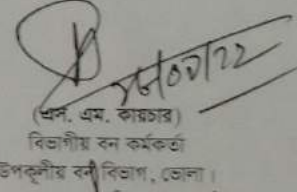 (এস. এম. কায়চার)
বিভাগীয় বন কর্মকর্তা
উপকূলীয় বন বিভাগ, ভোলা।